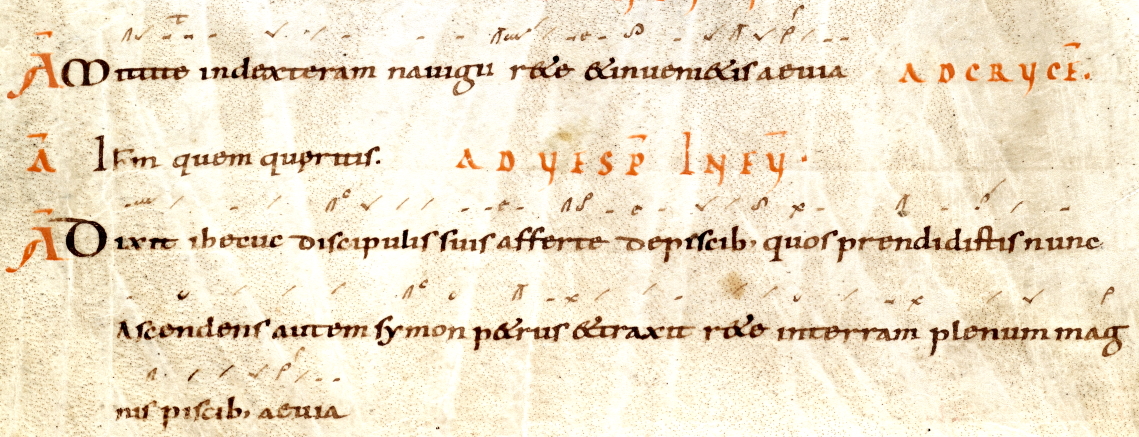 A Mittite indexteram nauigii r&e &inueni&is aeuia AD CRVCE.
A ITEm quem queritis. AD VESP IN FY.
A Dixit ihecuc discipulis suis afferte depiscib; quos prendidistis nunc
Ascendens autem symon p&rus &traxit r&e interram plenum mag
nis piscib; aeuia